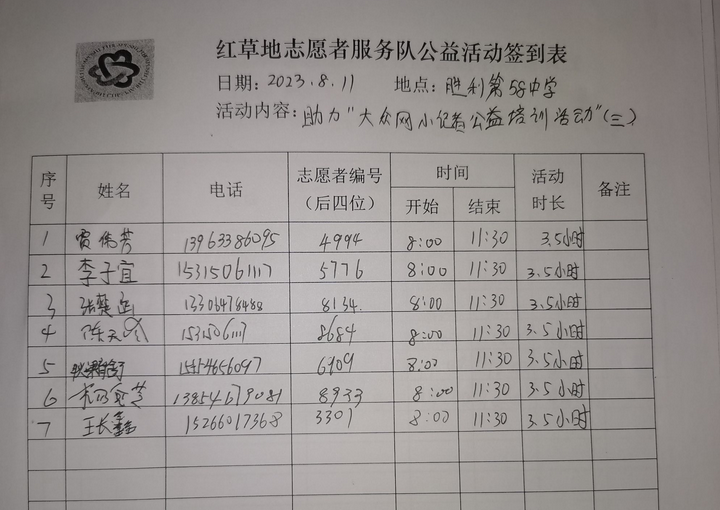 红草地志愿者服务队公益活动签到表
日期：2023.8.11 地点：胜利第58中学
活动内容：助力“大众网小记者公益培训活动”(三)
序号 姓名 电话 志愿者编号（后四位） 时间 开始 结束 活动时长 备注
1 贾伟芳 13963386095 4994 8:00 11:30 3.5小时
2 李子宜 15315061117 5776 8:00 11:30 3.5小时
3 13306478488 8134 8:00 11:30 3.5小时
4 8684 8:00 11:30 3.5小时
5 6909 8:00 11:30 3.5小时
6 13854679081 8933 8:00 11:30 3.5小时
7 王长鑫 15266017368 3301 8:00 11:30 3.5小时